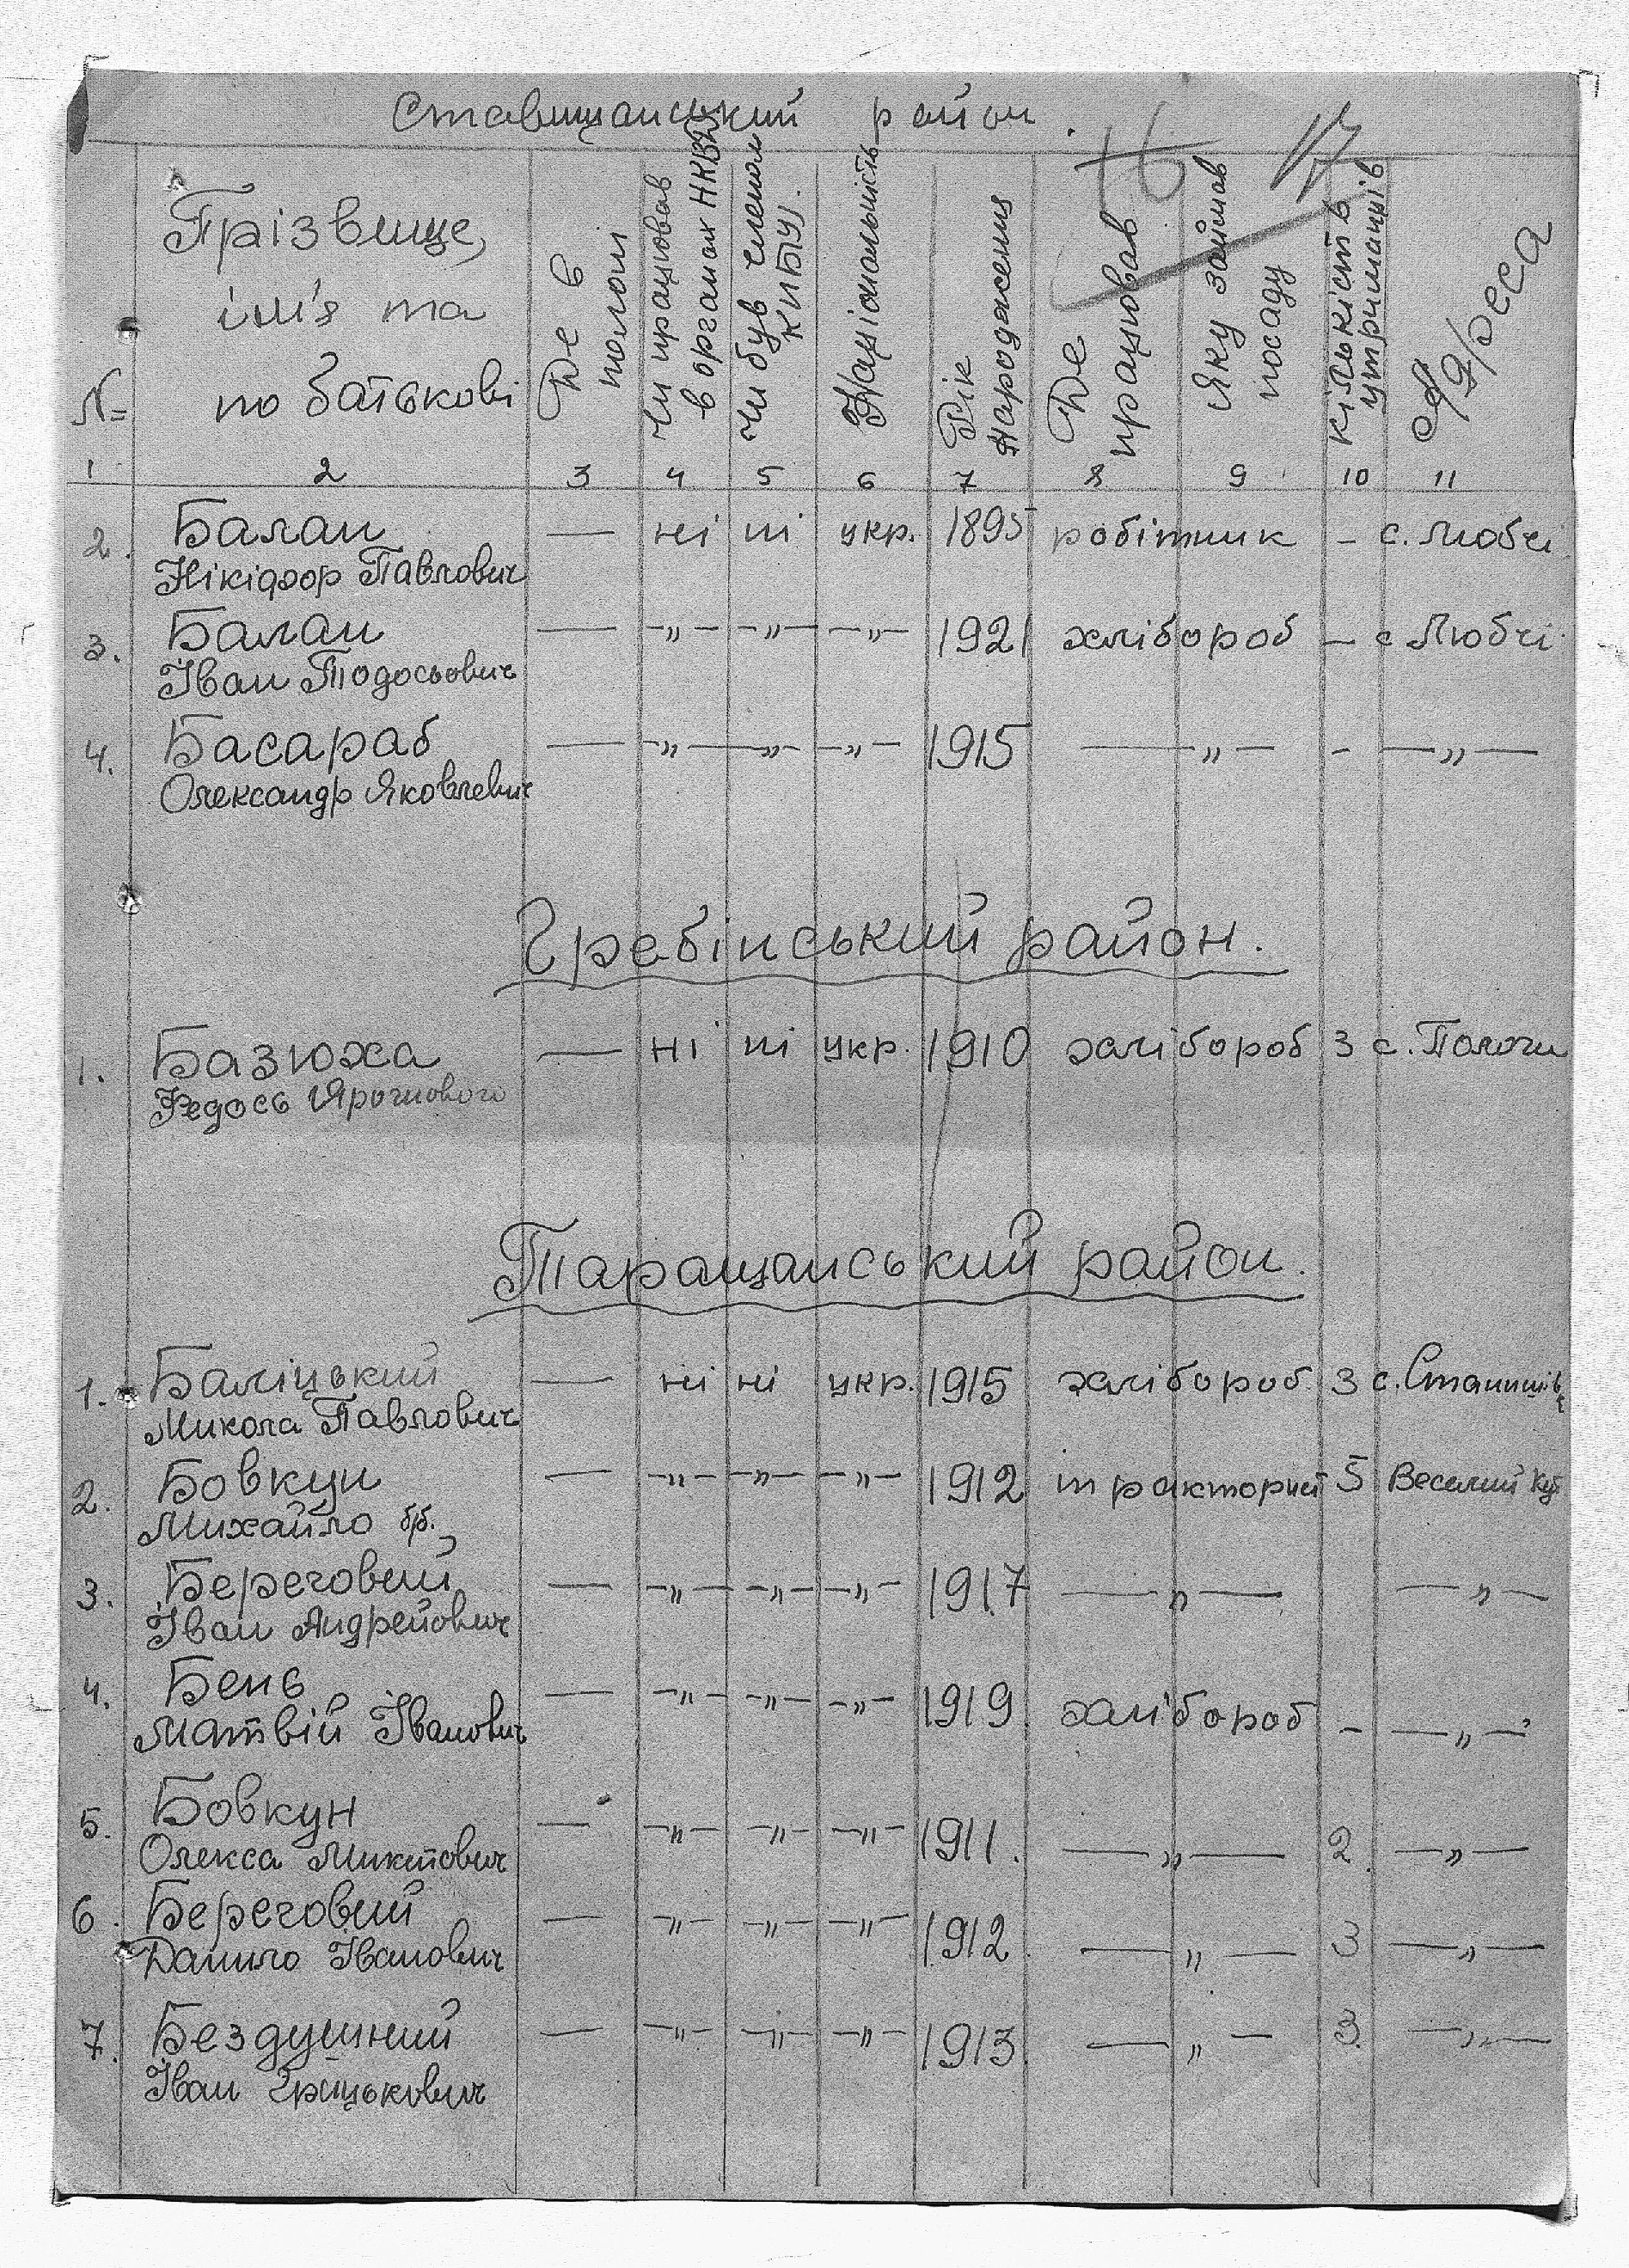 Ставищанський район.
16 17
№ Прізвище, ім'я та по батькові Де в полоні Чи працював в органах НКВД Чи був членом КП(б)У. Національність Рік народження Де працював Яку займав посаду кількість утриманців Адреса
1 2 3 4 5 6 7 8 9 10 11
2. Балан — ні ні укр. 1895 робітник – с. Любчі
Нікіфор Павлович
3. Балан — –„– –„– –„– 1921 хлібороб – с Любчі
Іван Тодосьович
4. Басараб — –„– –„– –„– 1915 –„– – –„–
Олександр Яковлевич
Гребінський район.
1. Базюха — ні ні укр. 1910 хлібороб 3 с. Пологи
Федось
Таращанський район.
1. Баліцький — ні ні укр. 1915 хлібороб. 3 с.
Микола Павлович
2. Бовкун — –„– –„– –„– 1912 тракторист 5 Веселий Кут
Михайло б/б.
3. Береговий — –„– –„– –„– 1917 –„– –„–
Іван Андрейович
4. Бень — –„– –„– –„– 1919 хлібороб – –„–
Матвій Іванович
5. Бовкун — –„– –„– –„– 1911. –„– 2 –„–
Олекса Микитович
6. Береговий — –„– –„– –„– 1912 –„– 3 –„–
Данило Іванович
7. Бездушний — –„– –„– –„– 1913 –„– 3 –„–
Іван Грицькович